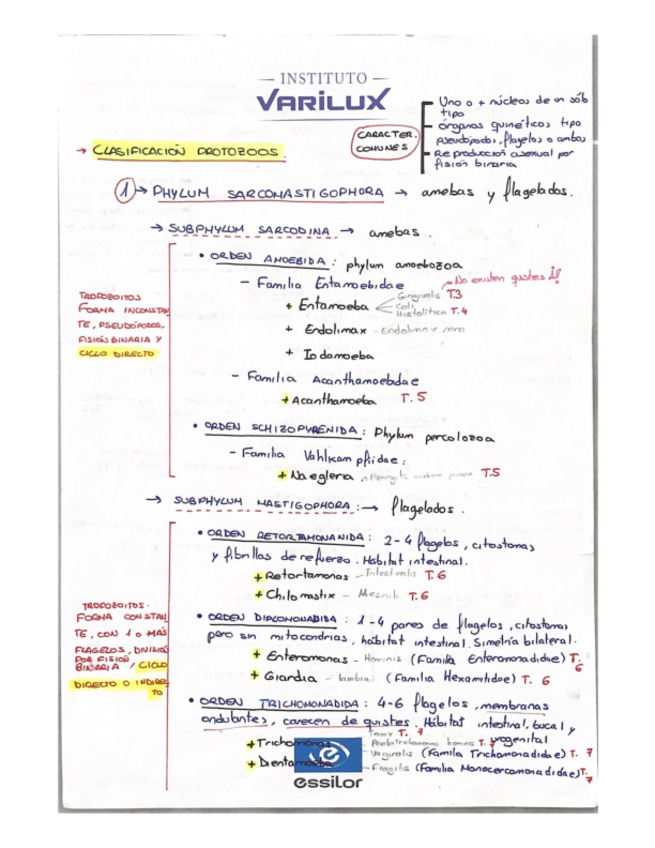 — INSTITUTO —
VARILUX
Uno o + núcleos de un sólo
tipo
CARACTER.
COMUNES
órganos quinéticos tipo
pseudópodos, flagelos o ambos
Reproducción asexual por
fisión binaria
→ CLASIFICACIÓN PROTOZOOS.
1 → PHYLUM SARCOMASTIGOPHORA → amebas y flagelados.
→ SUBPHYLUM SARCODINA → amebas.
• ORDEN AMOEBIDA: phylum amoebozoa
- Familia Entamoebidae
No existen quistes
+ Entamoeba
Gingivalis T.3
Coli,
Histolitica T.4
+ Endolimax - Endolimax nana
+ Iodamoeba
TROPOZOITOS
FORMA INCONSTAN
TE, PSEUDÓPODOS,
FISIÓN BINARIA Y
CICLO DIRECTO
- Familia Acanthamoebidae
+ Acanthamoeba T.5
• ORDEN SCHIZOPYRENIDA: Phylum percolozoa
- Familia Vahlkampfiidae:
+ Naegleria. T.5
→ SUBPHYLUM MASTIGOPHORA: → flagelados.
• ORDEN RETORTAMONANIDA: 2-4 flagelos, citostomas
y fibrillas de refuerzo. Hábitat intestinal.
+ Retortamonas - Intestinalis T.6
+ Chilomastix - Mesnili T.6
TROPOZOITOS.
FORMA CONSTAN
TE, CON 1 O MÁS
FLAGELOS, DIVISIÓN
POR FISIÓN
BINARIA, CICLO
DIRECTO O INDIREC
TO
• ORDEN DIPLOMONADIDA: 1-4 pares de flagelos, citostomas
pero sin mitocondrias, hábitat intestinal. Simetría bilateral.
+ Enteromonas - Hominis (Familia Enteromonadidae) T.
6
+ Giardia - lamblia (Familia Hexamitidae) T. 6
• ORDEN TRICHOMONADIDA: 4-6 flagelos, membranas
ondulantes, carecen de quistes. Hábitat intestinal, bucal y
urogenital
Tenax T. 7
+ Trichomonas
Pentatrichomonas hominis T.7
Vaginalis (Familia Trichomonadidae) T. 7
+ Dientamoeba - Fragilis (Familia Monocercomonadidae) T.
7
essilor